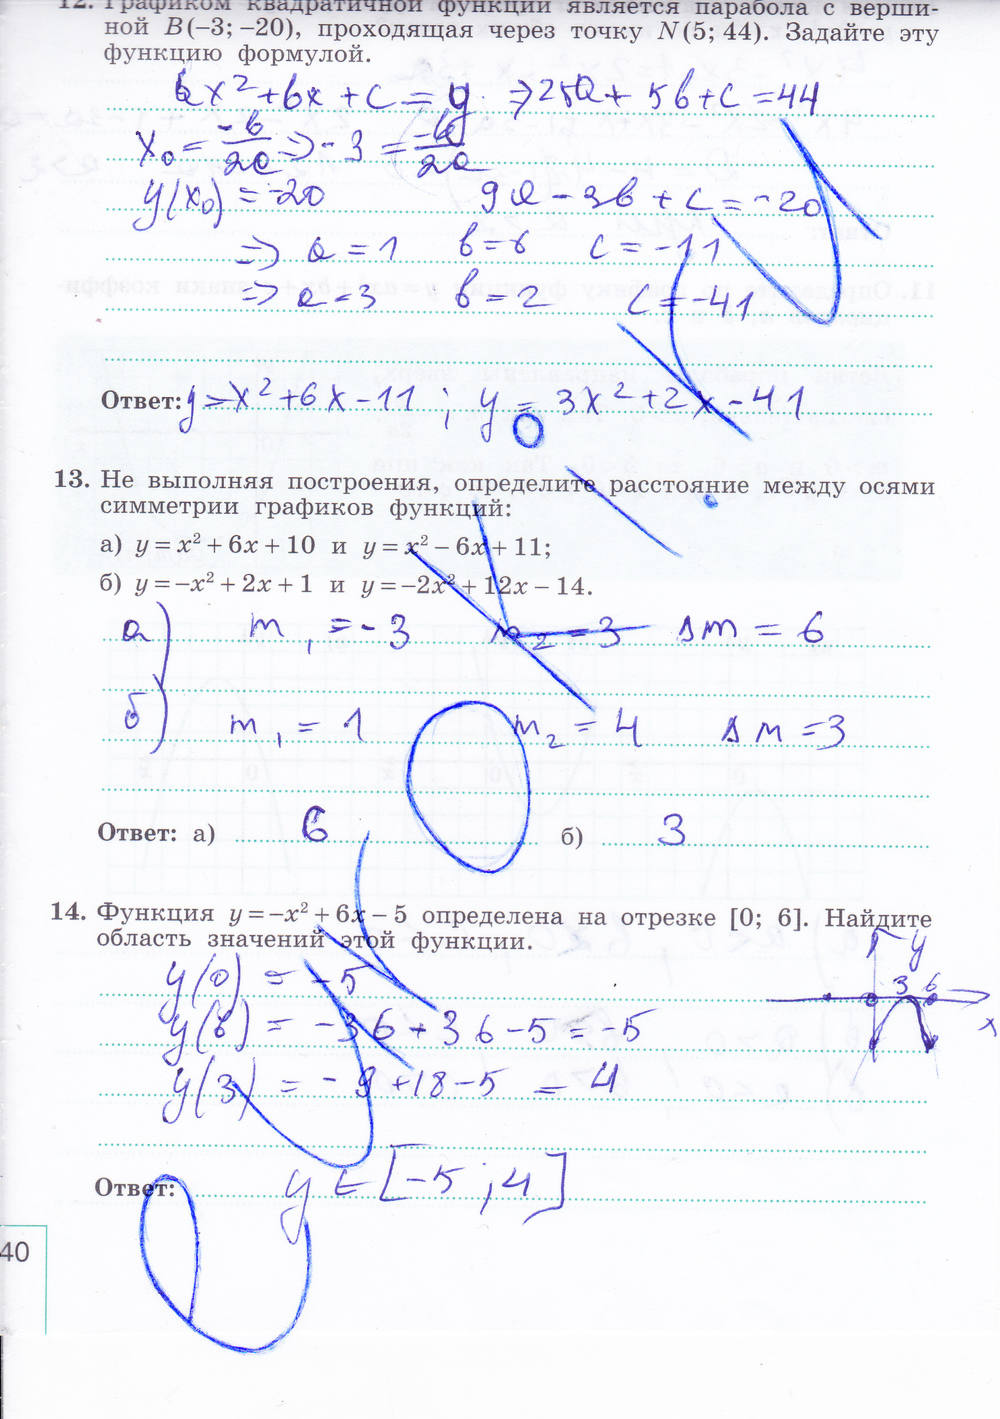 12. Графиком квадратичной функции является парабола с верши-
ной B(–3; –20), проходящая через точку N(5; 44). Задайте эту
функцию формулой.
ax² + bx + c = y ⇒ 25a + 5b + c = 44
x₀ = -b/2a ⇒ -3 = -b/2a
y(x₀) = -20 9a - 3b + c = -20
⇒ a = 1 b = 6 c = -11
⇒ a = 3 b = 2 c = -41
Ответ: y = x² + 6x - 11 ; y = 3x² + 2x - 41
13. Не выполняя построения, определите расстояние между осями
симметрии графиков функций:
а) y = x² + 6x + 10 и y = x² – 6x + 11;
б) y = –x² + 2x + 1 и y = –2x² + 12x – 14.
а) m₁ = -3 m₂ = 3 Δm = 6
б) m₁ = 1 m₂ = 4 Δm = 3
Ответ: а) 6 б) 3
14. Функция y = –x² + 6x – 5 определена на отрезке [0; 6]. Найдите
область значений этой функции.
y(0) = -5
y 3 6 x
y(6) = -36 + 36 - 5 = -5
y(3) = -9 + 18 - 5 = 4
Ответ: y ∈ [-5 ; 4]
40